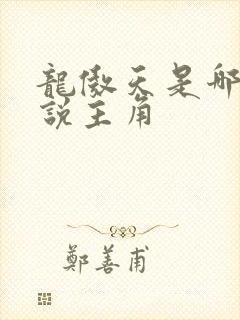 龍傲天是哪
說主角
鄭善甫